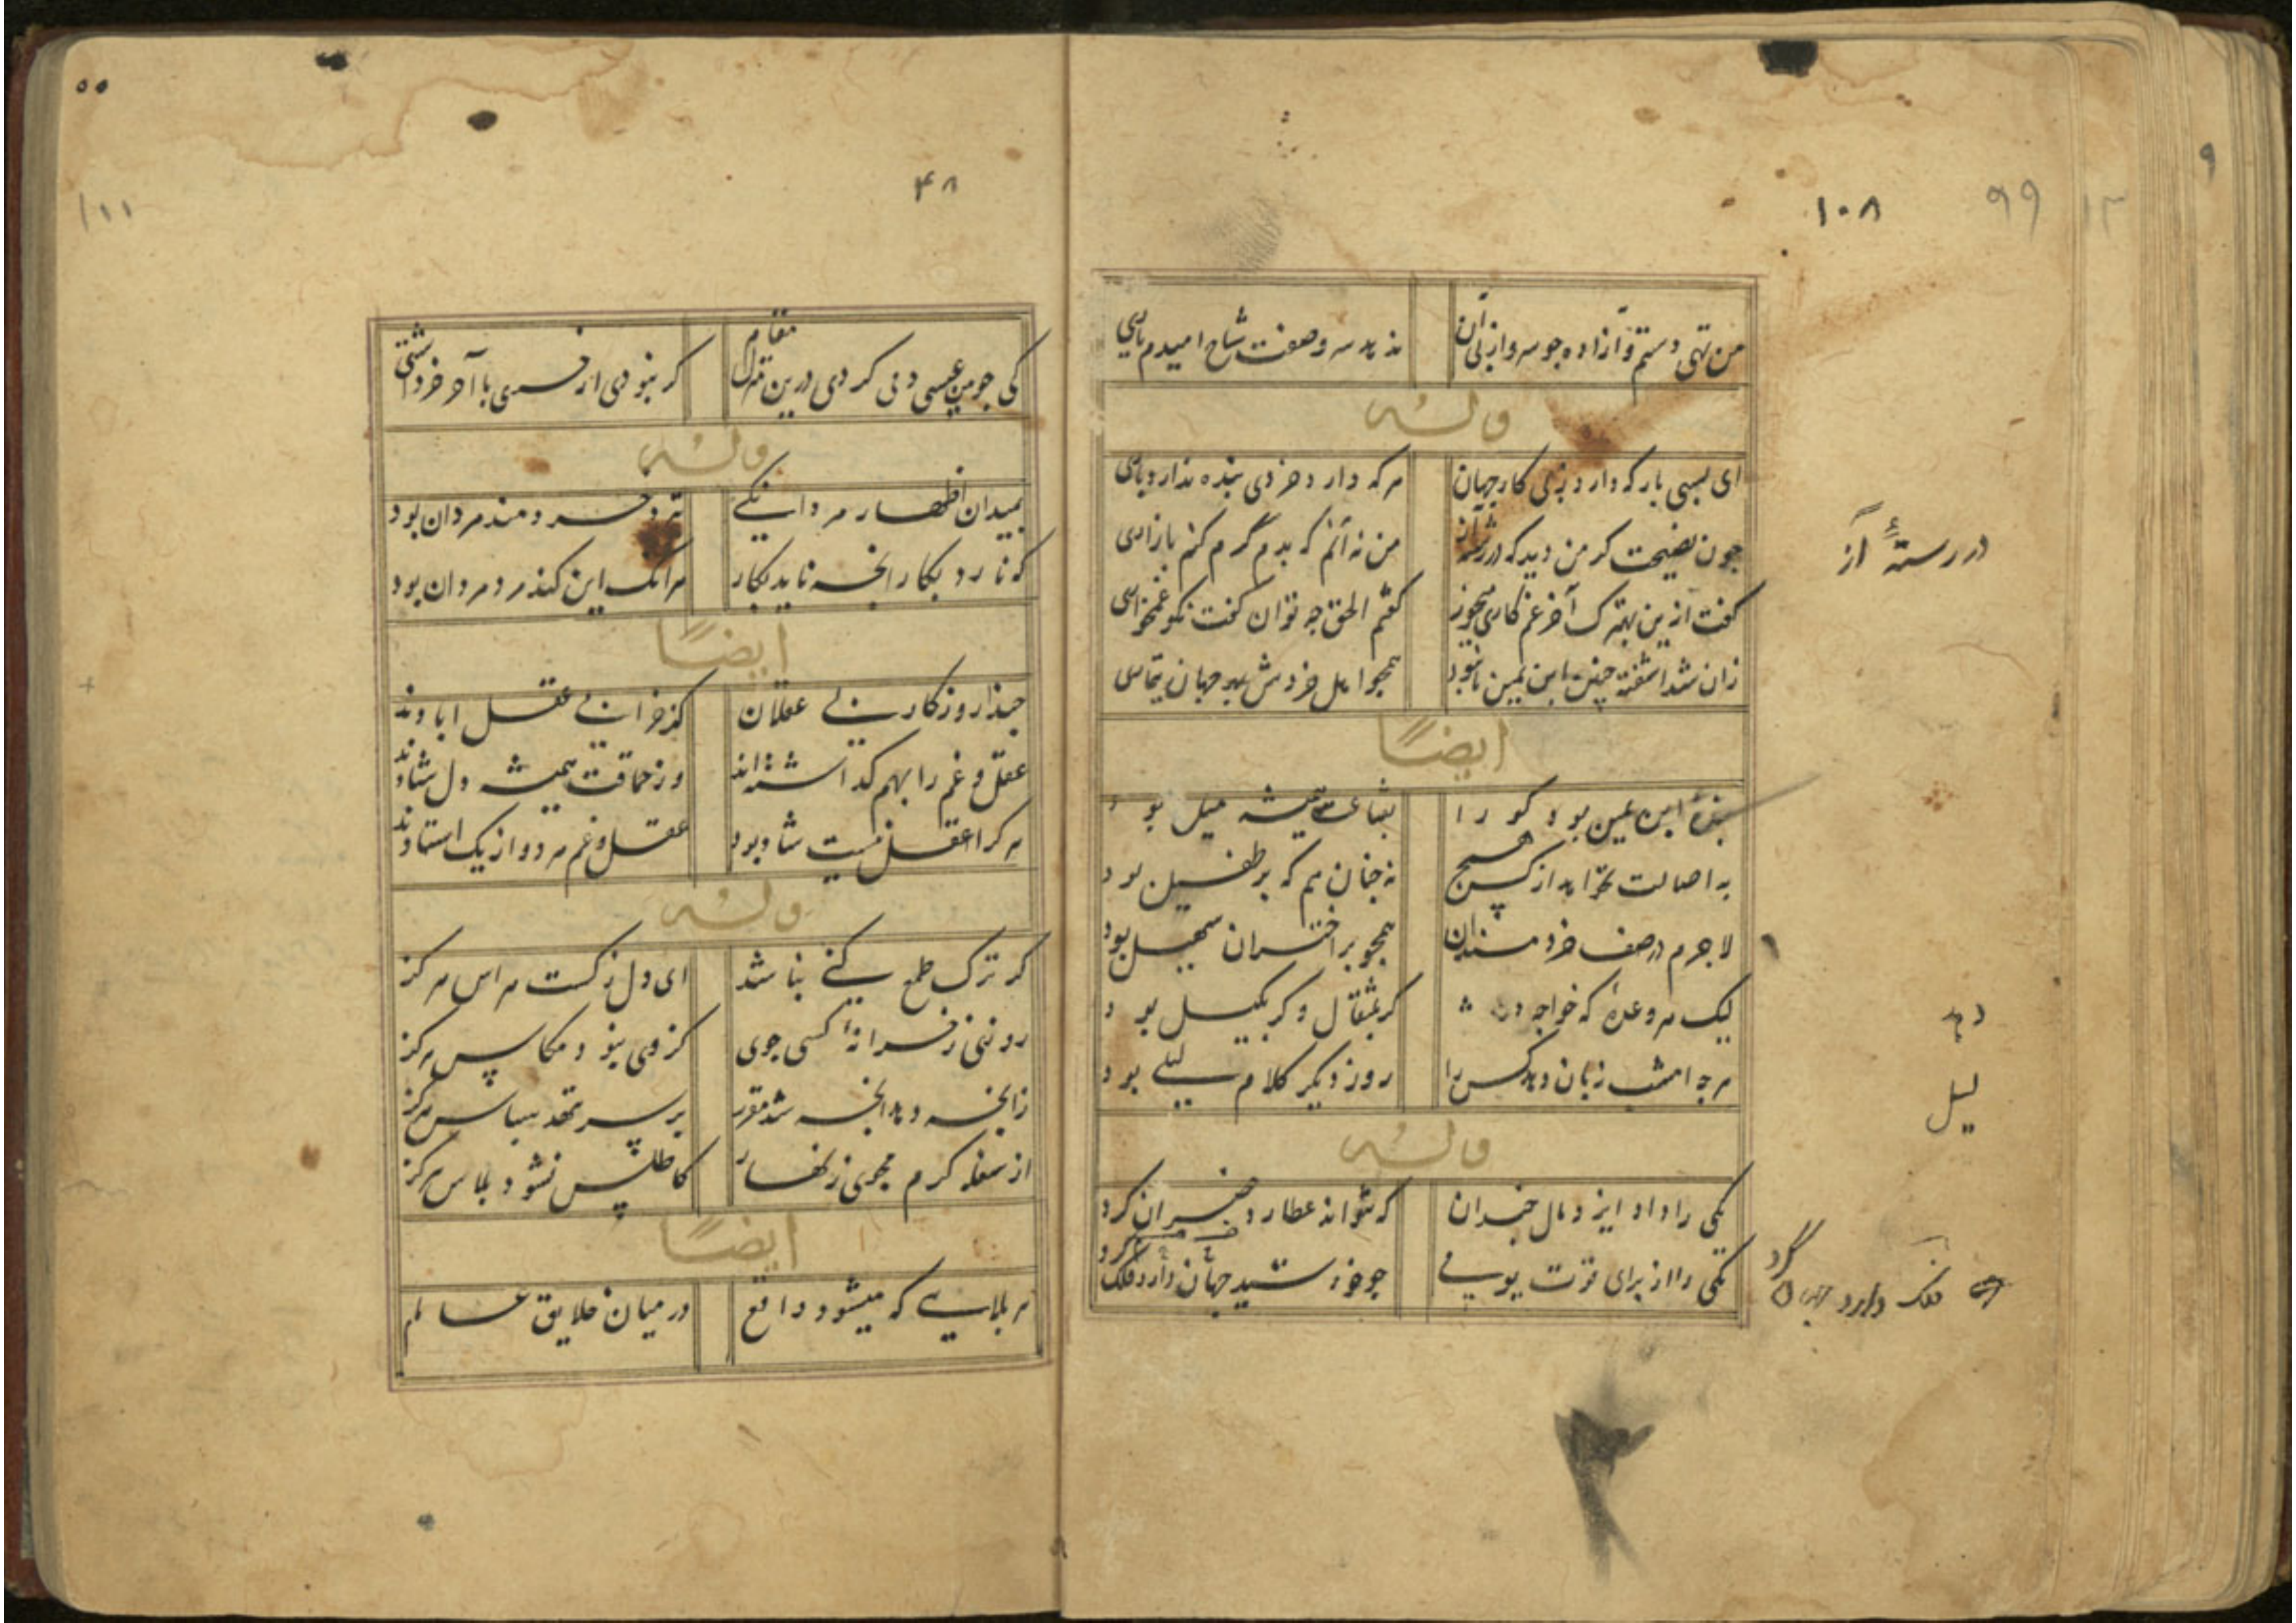 ۱۰۸
۹۹
۱۲
۹
من تهی دستم و آزاده چو سرو از پی آن
ندهد سرو صفت شاخ امیدم باری
وله
ای بسی بار که دارد ز پی کار جهان
هر که دارد خردی بنده ندارد باری
چون نصیحت گر من دید که در رسته آز
من نه آنم که بدم گرم کنم بازاری
گفت ازین بهترک آخر غم کاری میخور
گفتم الحق چه توان گفت نکو غمخواری
زان شد آشفته چنین ابن یمین تا نبود
همچو اهل خردش بهر جهان تیماری
در رستهٔ آز
ایضاً
بنده ابن یمین بود کو را
همیشه میل بود
به اصالت نخواهد از کس هیچ
نه چنان هم که بر طفیل بود
لاجرم در صف خردمندان
همچو بر اختران سهیل بود
لیک هر وعده که خواجه دهد
گر بمثقال و گر بکیل بود
هر چه امشب زبان دهد کس را
روز دیگر کلام لیلی بود
دهد
لیل
وله
یکی را داد ایزد مال چندان
که نتواند عطارد جبران کرد
یکی را از برای قوت یومی
چو خورشید جهان دارد فلک کرد
فلک دارد جهان گرد
۵۵
۴۸
۱۱۱
کی چو من عیسی دمی کردی درین منزل مقام
گر نبودی از خری با آخر خرداشتی
وله
بمیدان اظهار مردانگی
تردد خردمند مردان بود
که نارد بکار آنچه ناید بکار
هر آنک این کند مرد مردان بود
ایضاً
حبذا روزگار بی عقلان
کز خرابی عقل آبادند
عقل و غم را بهم گذاشته‌اند
وز حماقت همیشه دل شادند
هر کرا عقل نیست شاد بود
عقل و غم هر دو از یک استادند
وله
گر ترک طمع کنی نباشد
ای دل ز کست هراس هرگز
رو نی ز خزانهٔ کسی جوی
کزوی نبود مکاس هرگز
زانچه دهد آنچه شد مقرر
بر سر ننهد سپاس هرگز
از سفله کرم مجوی زنهار
کاطلس نشود پلاس هرگز
ایضاً
هر بلایی که میشود واقع
در میان خلایق عالم